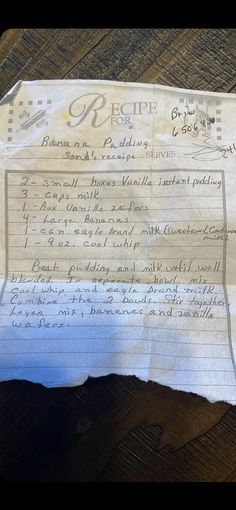 RECIPE
FOR
Banana Pudding
Sand's receipe SERVES
2 - small boxes Vanilla instant pudding
3 - cups milk
1 - Box Vanilla wafers
4 - Large Bananas
1 - can eagle brand milk (sweetened
1 - 9 oz. cool whip
Beat pudding and milk until well
blended. In seperate bowl, mix
cool whip and eagle brand milk.
Combine the 2 bowls. Stir together
Layer mix, bananas and vanilla
wafers.